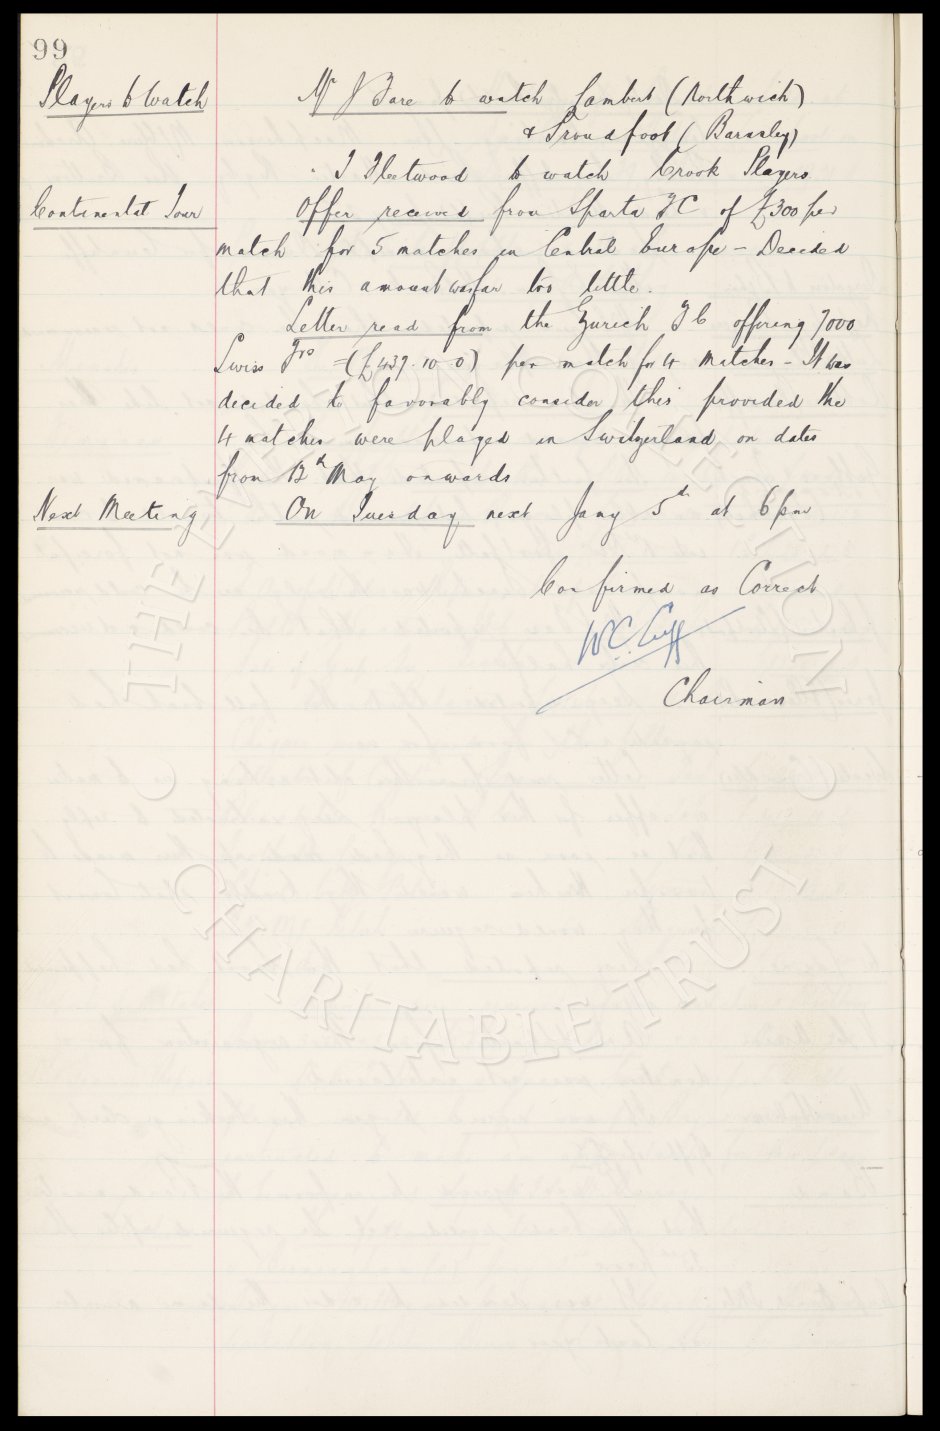 99
Players to Watch Mr J Fare to watch Lambert (Northwich)
& Proudfoot (Barnsley)
" T Fleetwood to watch Crook Players
Continental Tour Offer received from Sparta FC of £300 per
match for 5 matches in Central Europe - Decided
that this amount was far too little.
Letter read from the Zurich FC offering 7000
Swiss Frs = (£437.10.0) per match for 4 matches - It was
decided to favorably consider this provided the
4 matches were played in Switzerland on dates
from 12th May onwards
Next Meeting On Tuesday next Jany 5th at 6pm
Confirmed as Correct
WC Cuff
Chairman
THE EVERTON COLLECTION
CHARITABLE TRUST